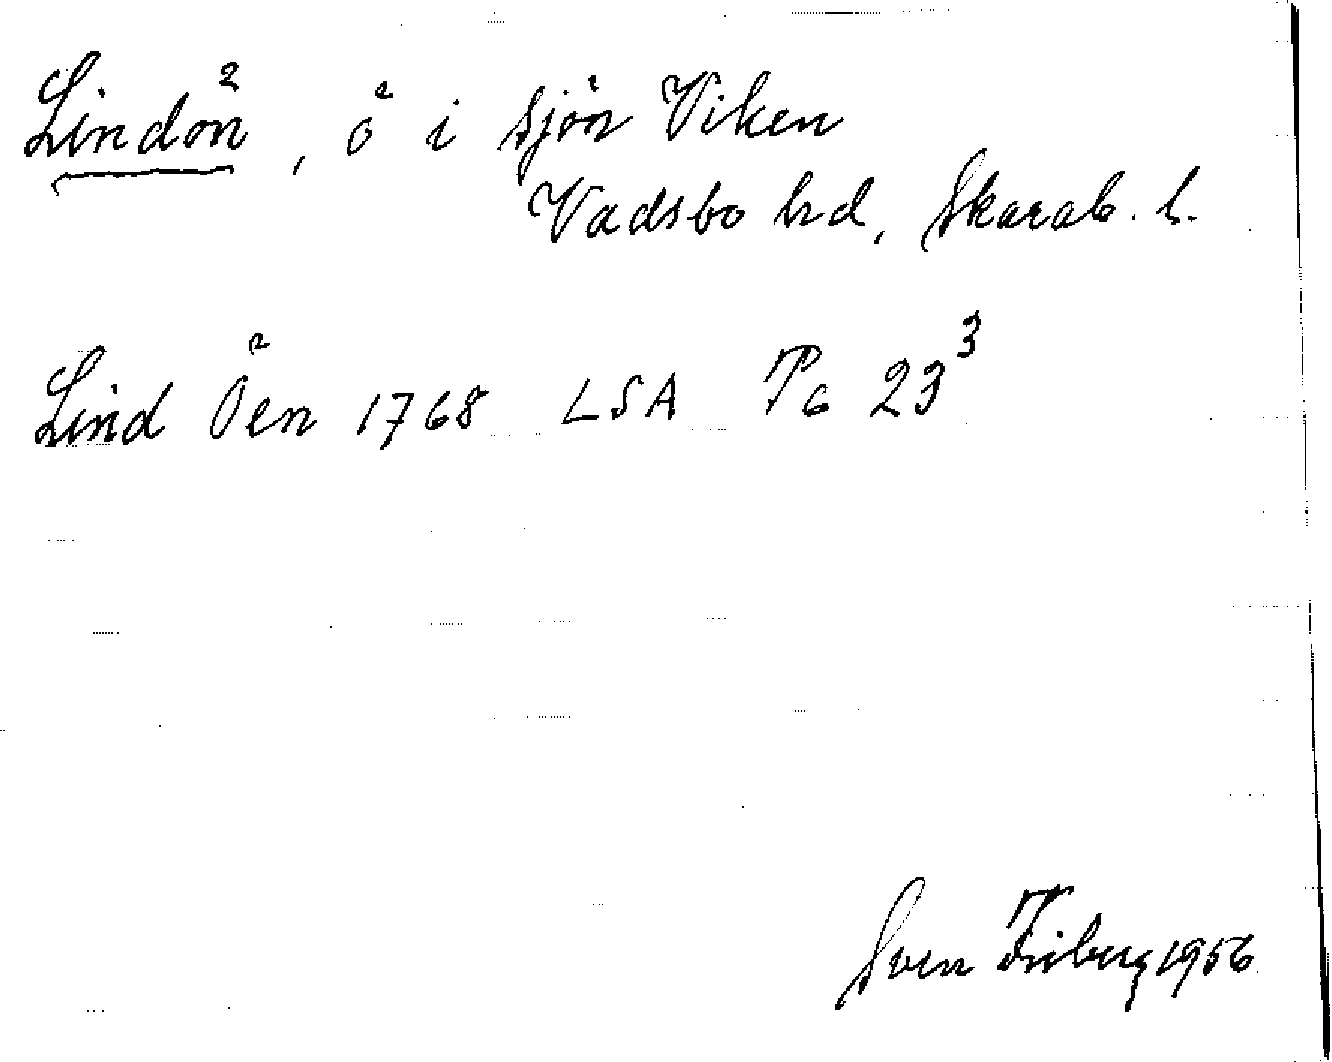 Lindön, ö i sjön Viken
Vadsbo hd, Skarab. l.
Lind Öen 1768 LSA P6 23³
Sven Friberg 1956